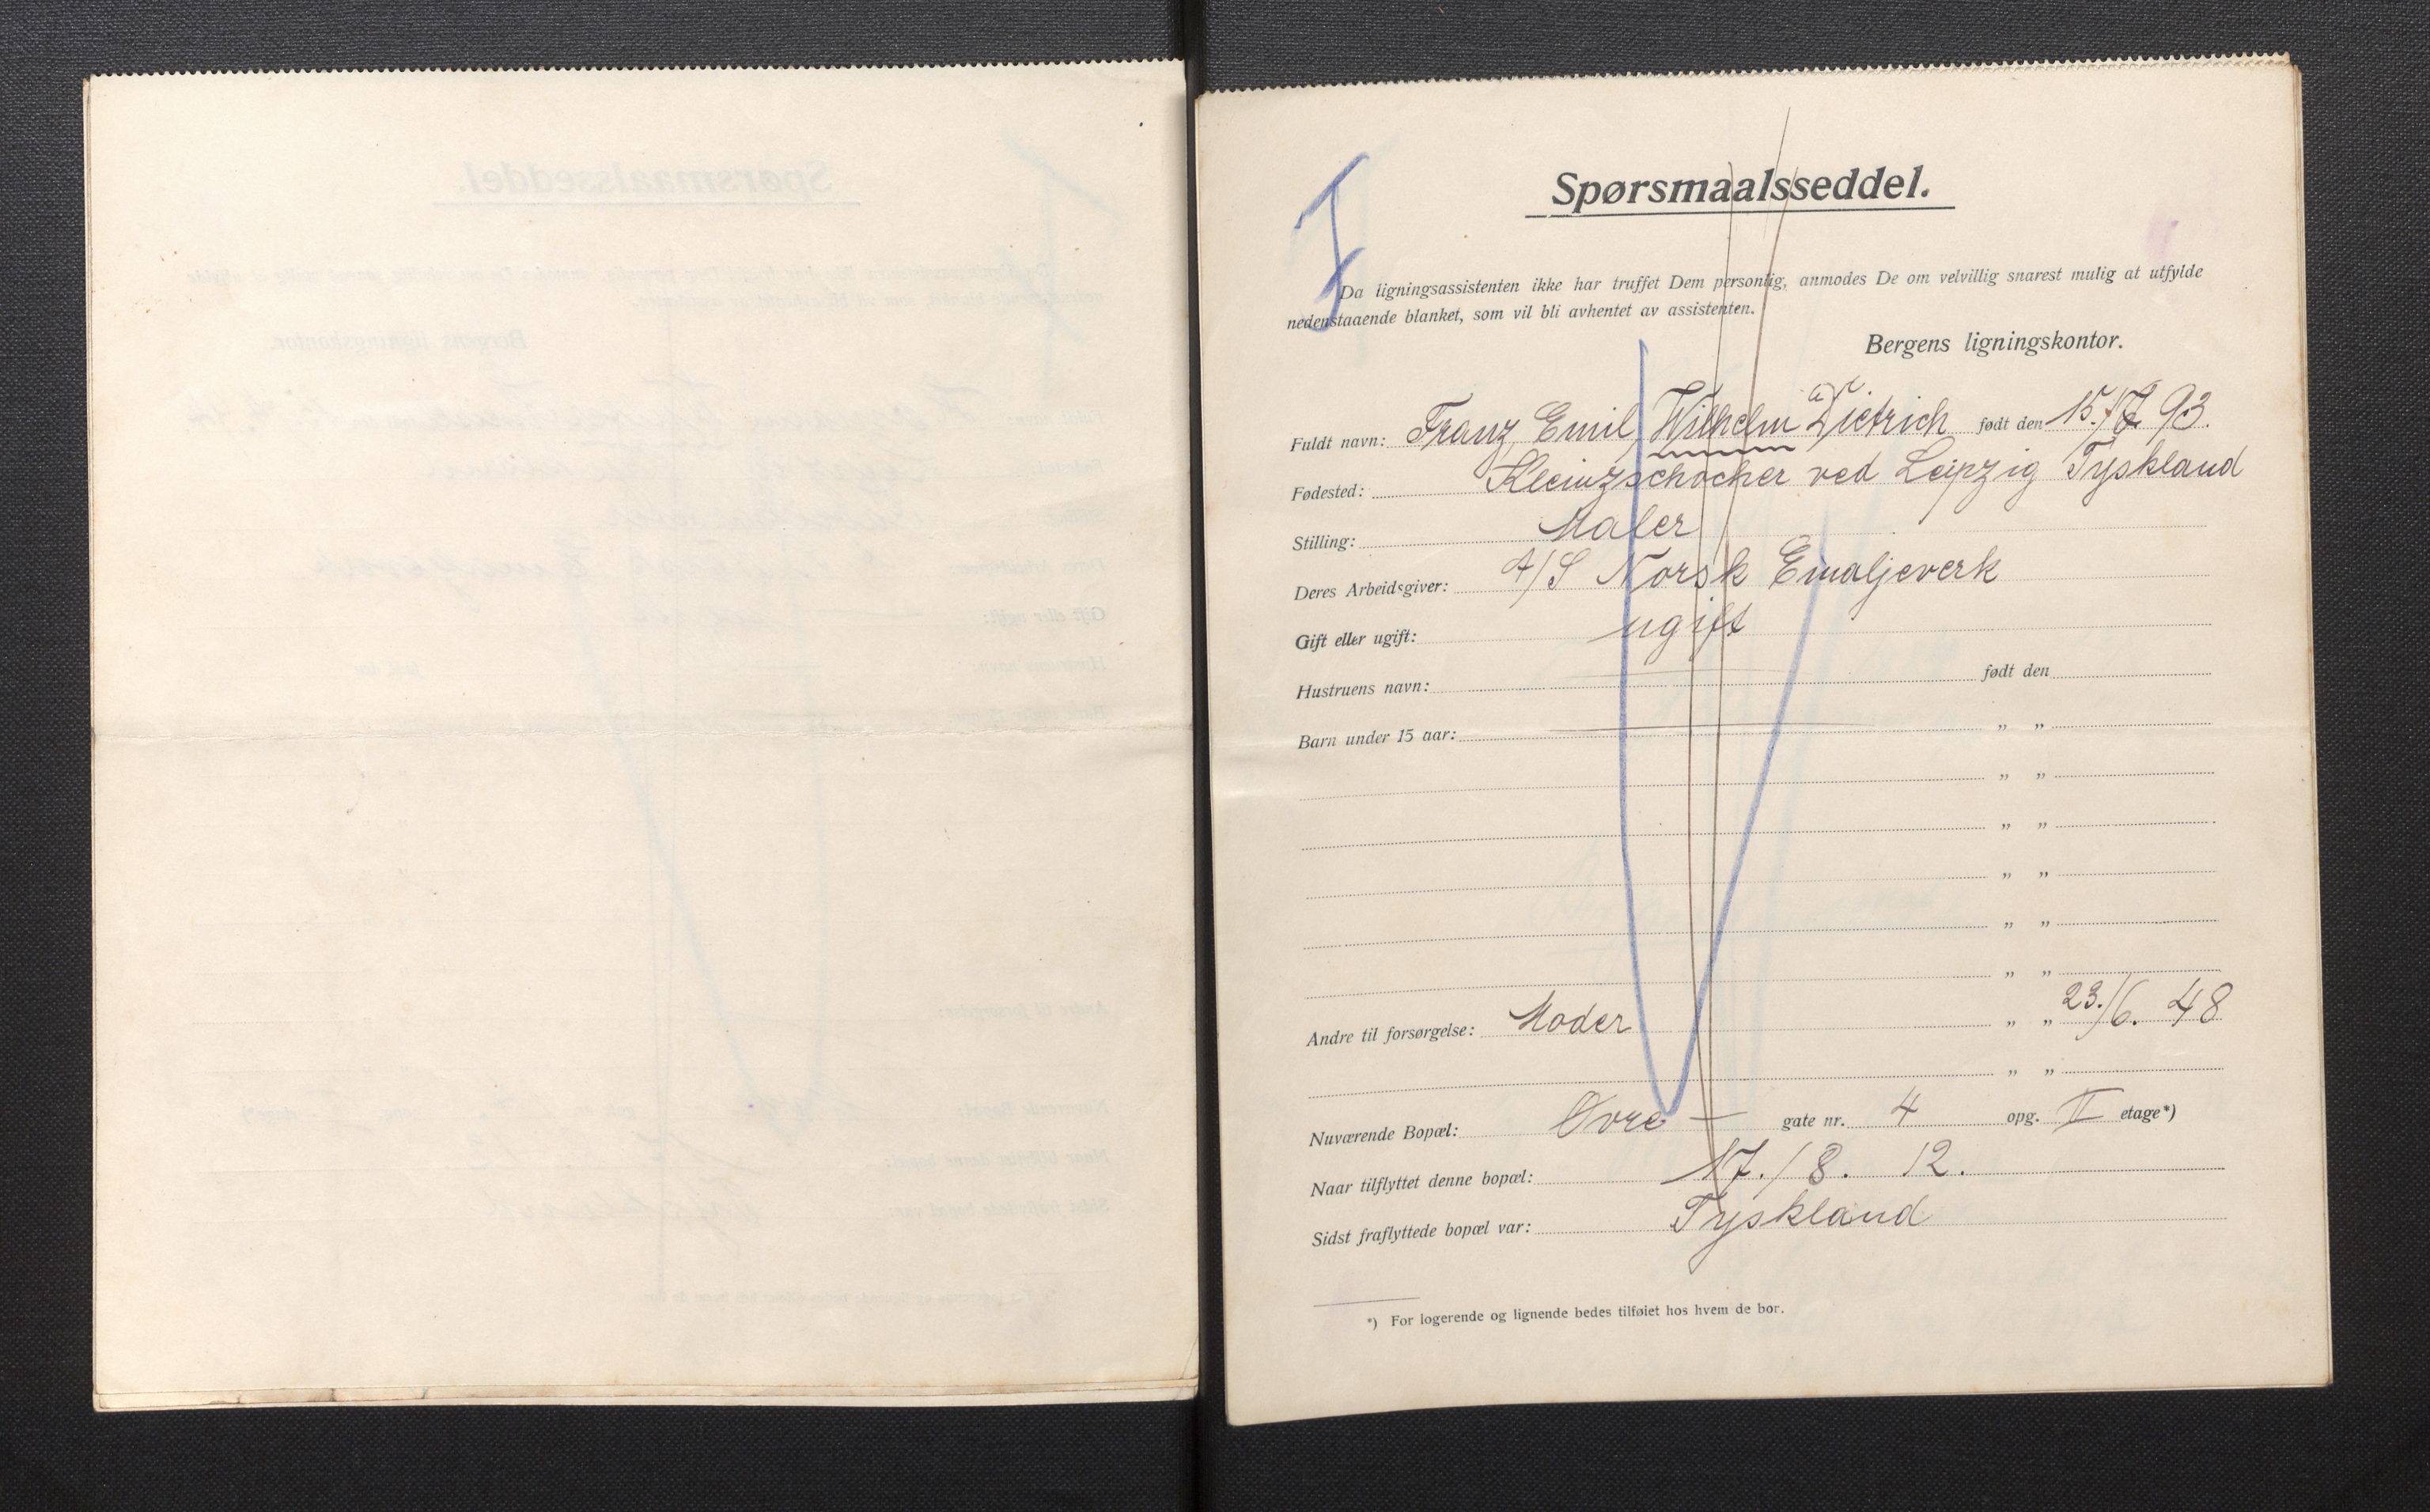 I
Spørsmaalsseddel.
Da ligningsassistenten ikke har truffet Dem personlig, anmodes De om velvillig snarest mulig at utfylde
nedenstaaende blanket, som vil bli avhentet av assistenten.
Bergens ligningskontor.
Fuldt navn: Franz, Emil, Wilhelm Dietrich født den 15./7. 93.
Fødested: Kleinzschocher ved Leipzig Tyskland
Stilling: Maler
Deres Arbeidsgiver: A/S Norsk Emaljeverk
Gift eller ugift: ugift
Hustruens navn: født den
Barn under 15 aar: „ „
„ „
„ „
„ „
„ „
„ „
Andre til forsørgelse: Moder „ „ 23./6. 48
„ „
Nuværende Bopæl: Øvre — gate nr. 4 opg. II etage*)
Naar tilflyttet denne bopæl: 17./8. 12.
Sidst fraflyttede bopæl var: Tyskland
*) For logerende og lignende bedes tilføiet hos hvem de bor.